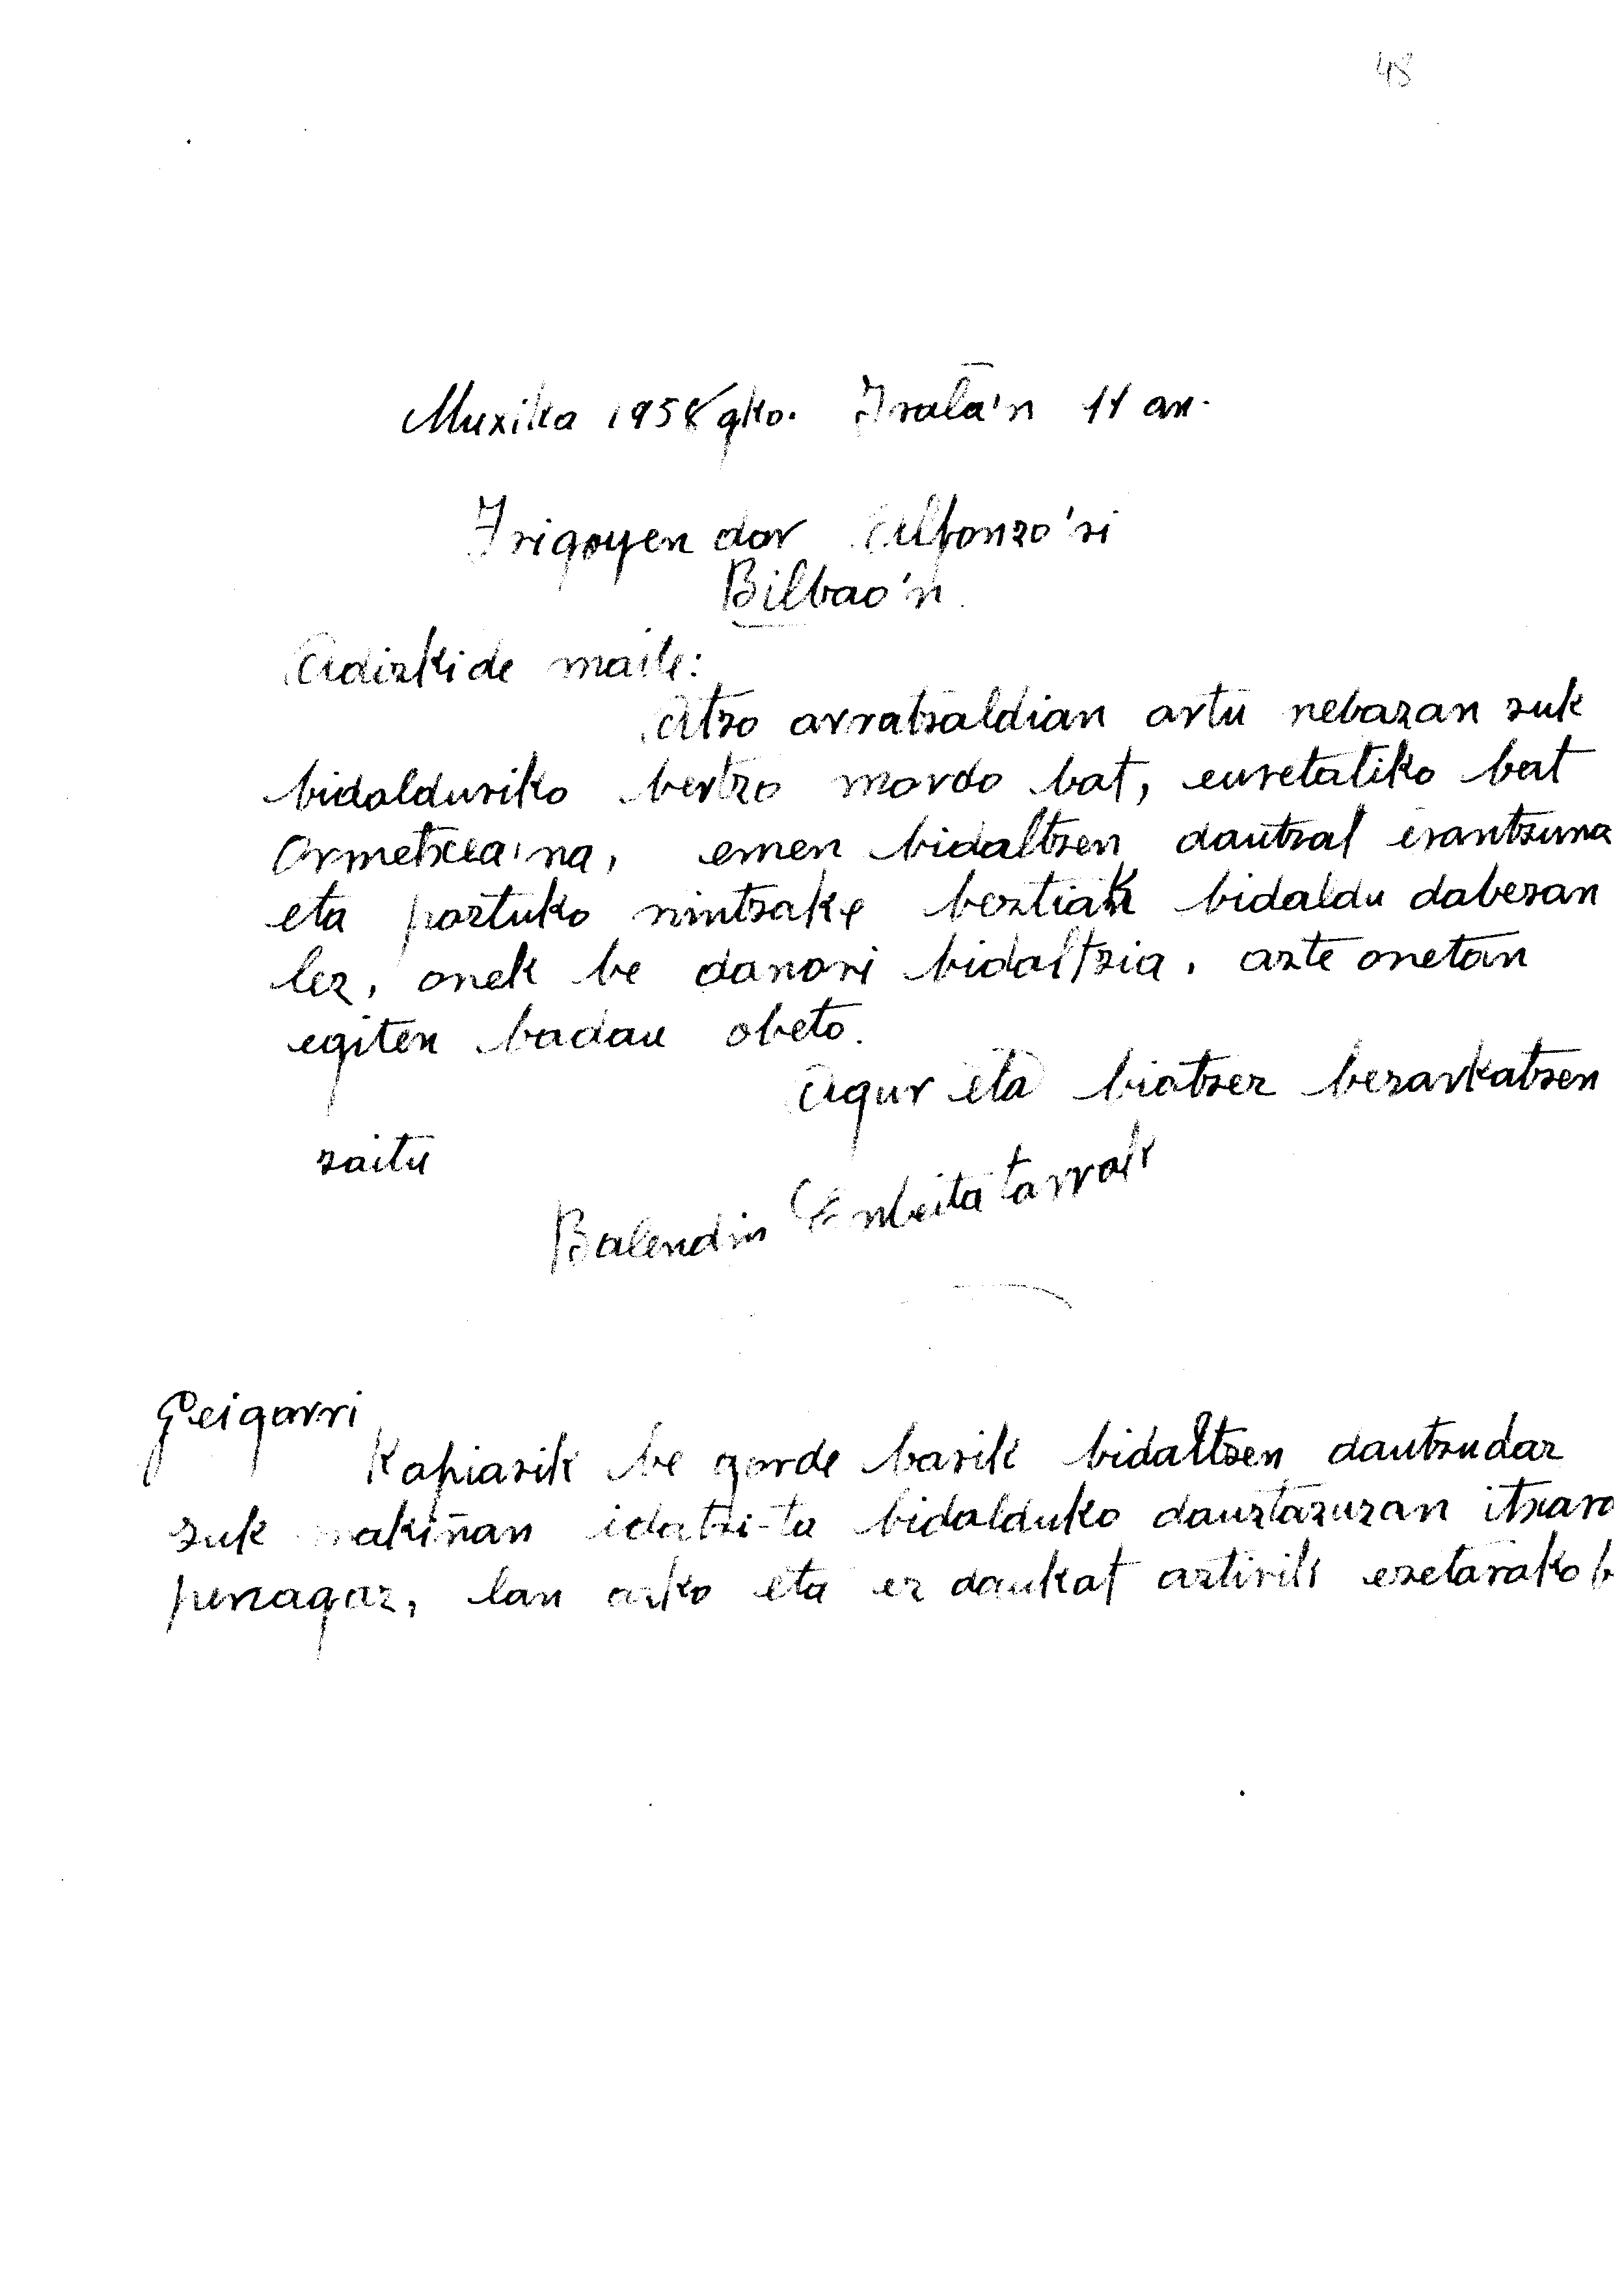 48
Muxika 1958gko. Irala'n 11 an.
Irigoyen dar Alfonzo'ri
Bilbao'n.
Adizkide maite:
Atzo arratzaldian artu nebazan zuk
bidalduriko bertzo mordo bat, euretatiko bat
Ormetxea'na, emen bidaltzen dautzat erantzuna
eta poztuko nintzake beztiak bidaldu dabezan
lez, onek be danori bidaltzia, azte onetan
egiten badau obeto.
Agur eta biotzez bezarkatzen
zaitu
Balendin Enbeita tarrak
Geigarri
Kopiarik be gorde barik bidaltzen dautzudaz
zuk makiñan idatzi-ta bidalduko dauztazuzan itxaro
penagaz, lan asko eta ez daukat aztirik ezetarako b